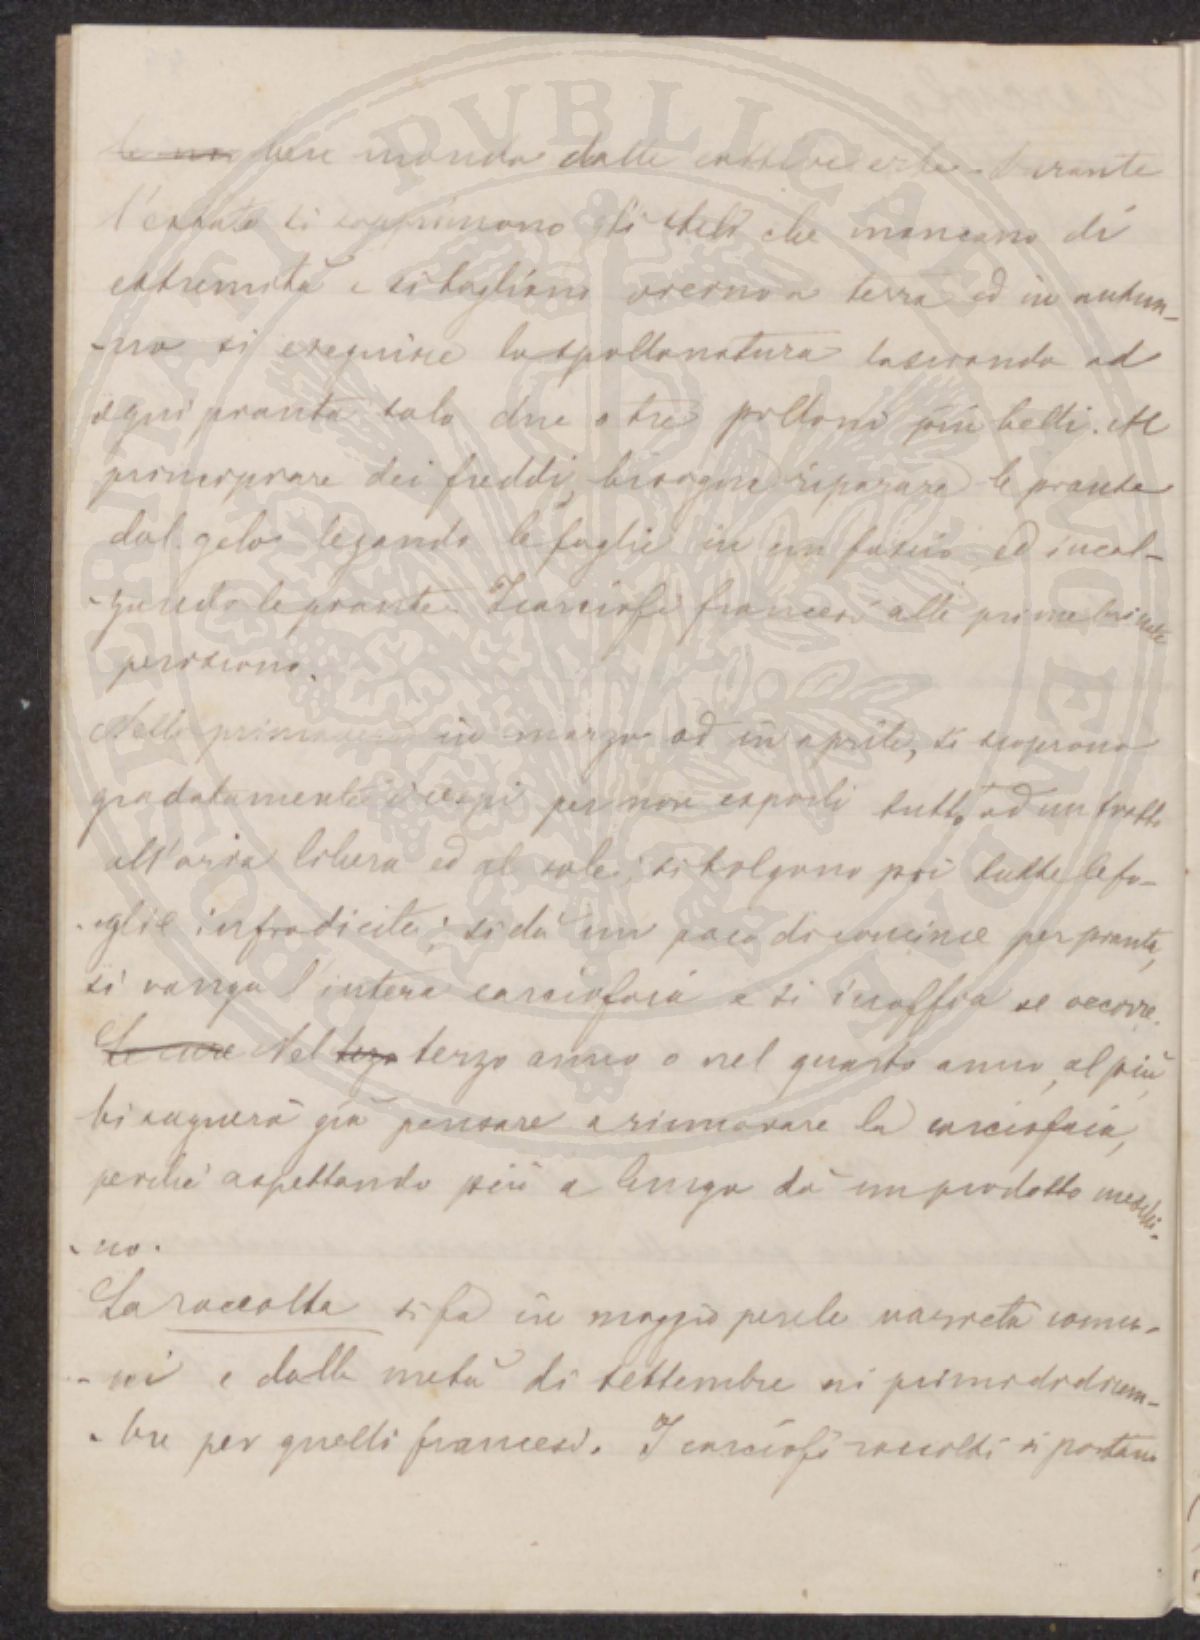 ben monda dalle cattive erbe. Durante
l'estate si sopprimono gli steli che mancano di
estremità e si tagliano vicino a terra ed in autun-
-no si eseguisce la spollonatura lasciando ad
ogni pianta solo due o tre polloni più belli. Al
principiare dei freddi, bisogna riparare le piante
dal gelo legando le foglie in un fascio ed incal-
-zando le piante. I carciofi francesi alle prime brinate
periscono.
Nella primavera in marzo od in aprile, si scoprono
gradatamente i cespi per non esporli tutto ad un tratto
all'aria libera ed al sole; si tolgono poi tutte le fo-
-glie infradicite; si dà un poco di concime per pianta,
si vanga l'intera carciofaia e si inaffia se occorre.
Le cure Nel terzo anno o nel quarto anno, al più
bisognerà già pensare a rinnovare la carciofaia,
perchè aspettando più a lungo dà un prodotto meschi-
-no.
La raccolta si fa in maggio per le varietà comu-
-ni e dalla metà di settembre ai primi di dicem-
-bre per quelli francesi. I carciofi raccolti si portano